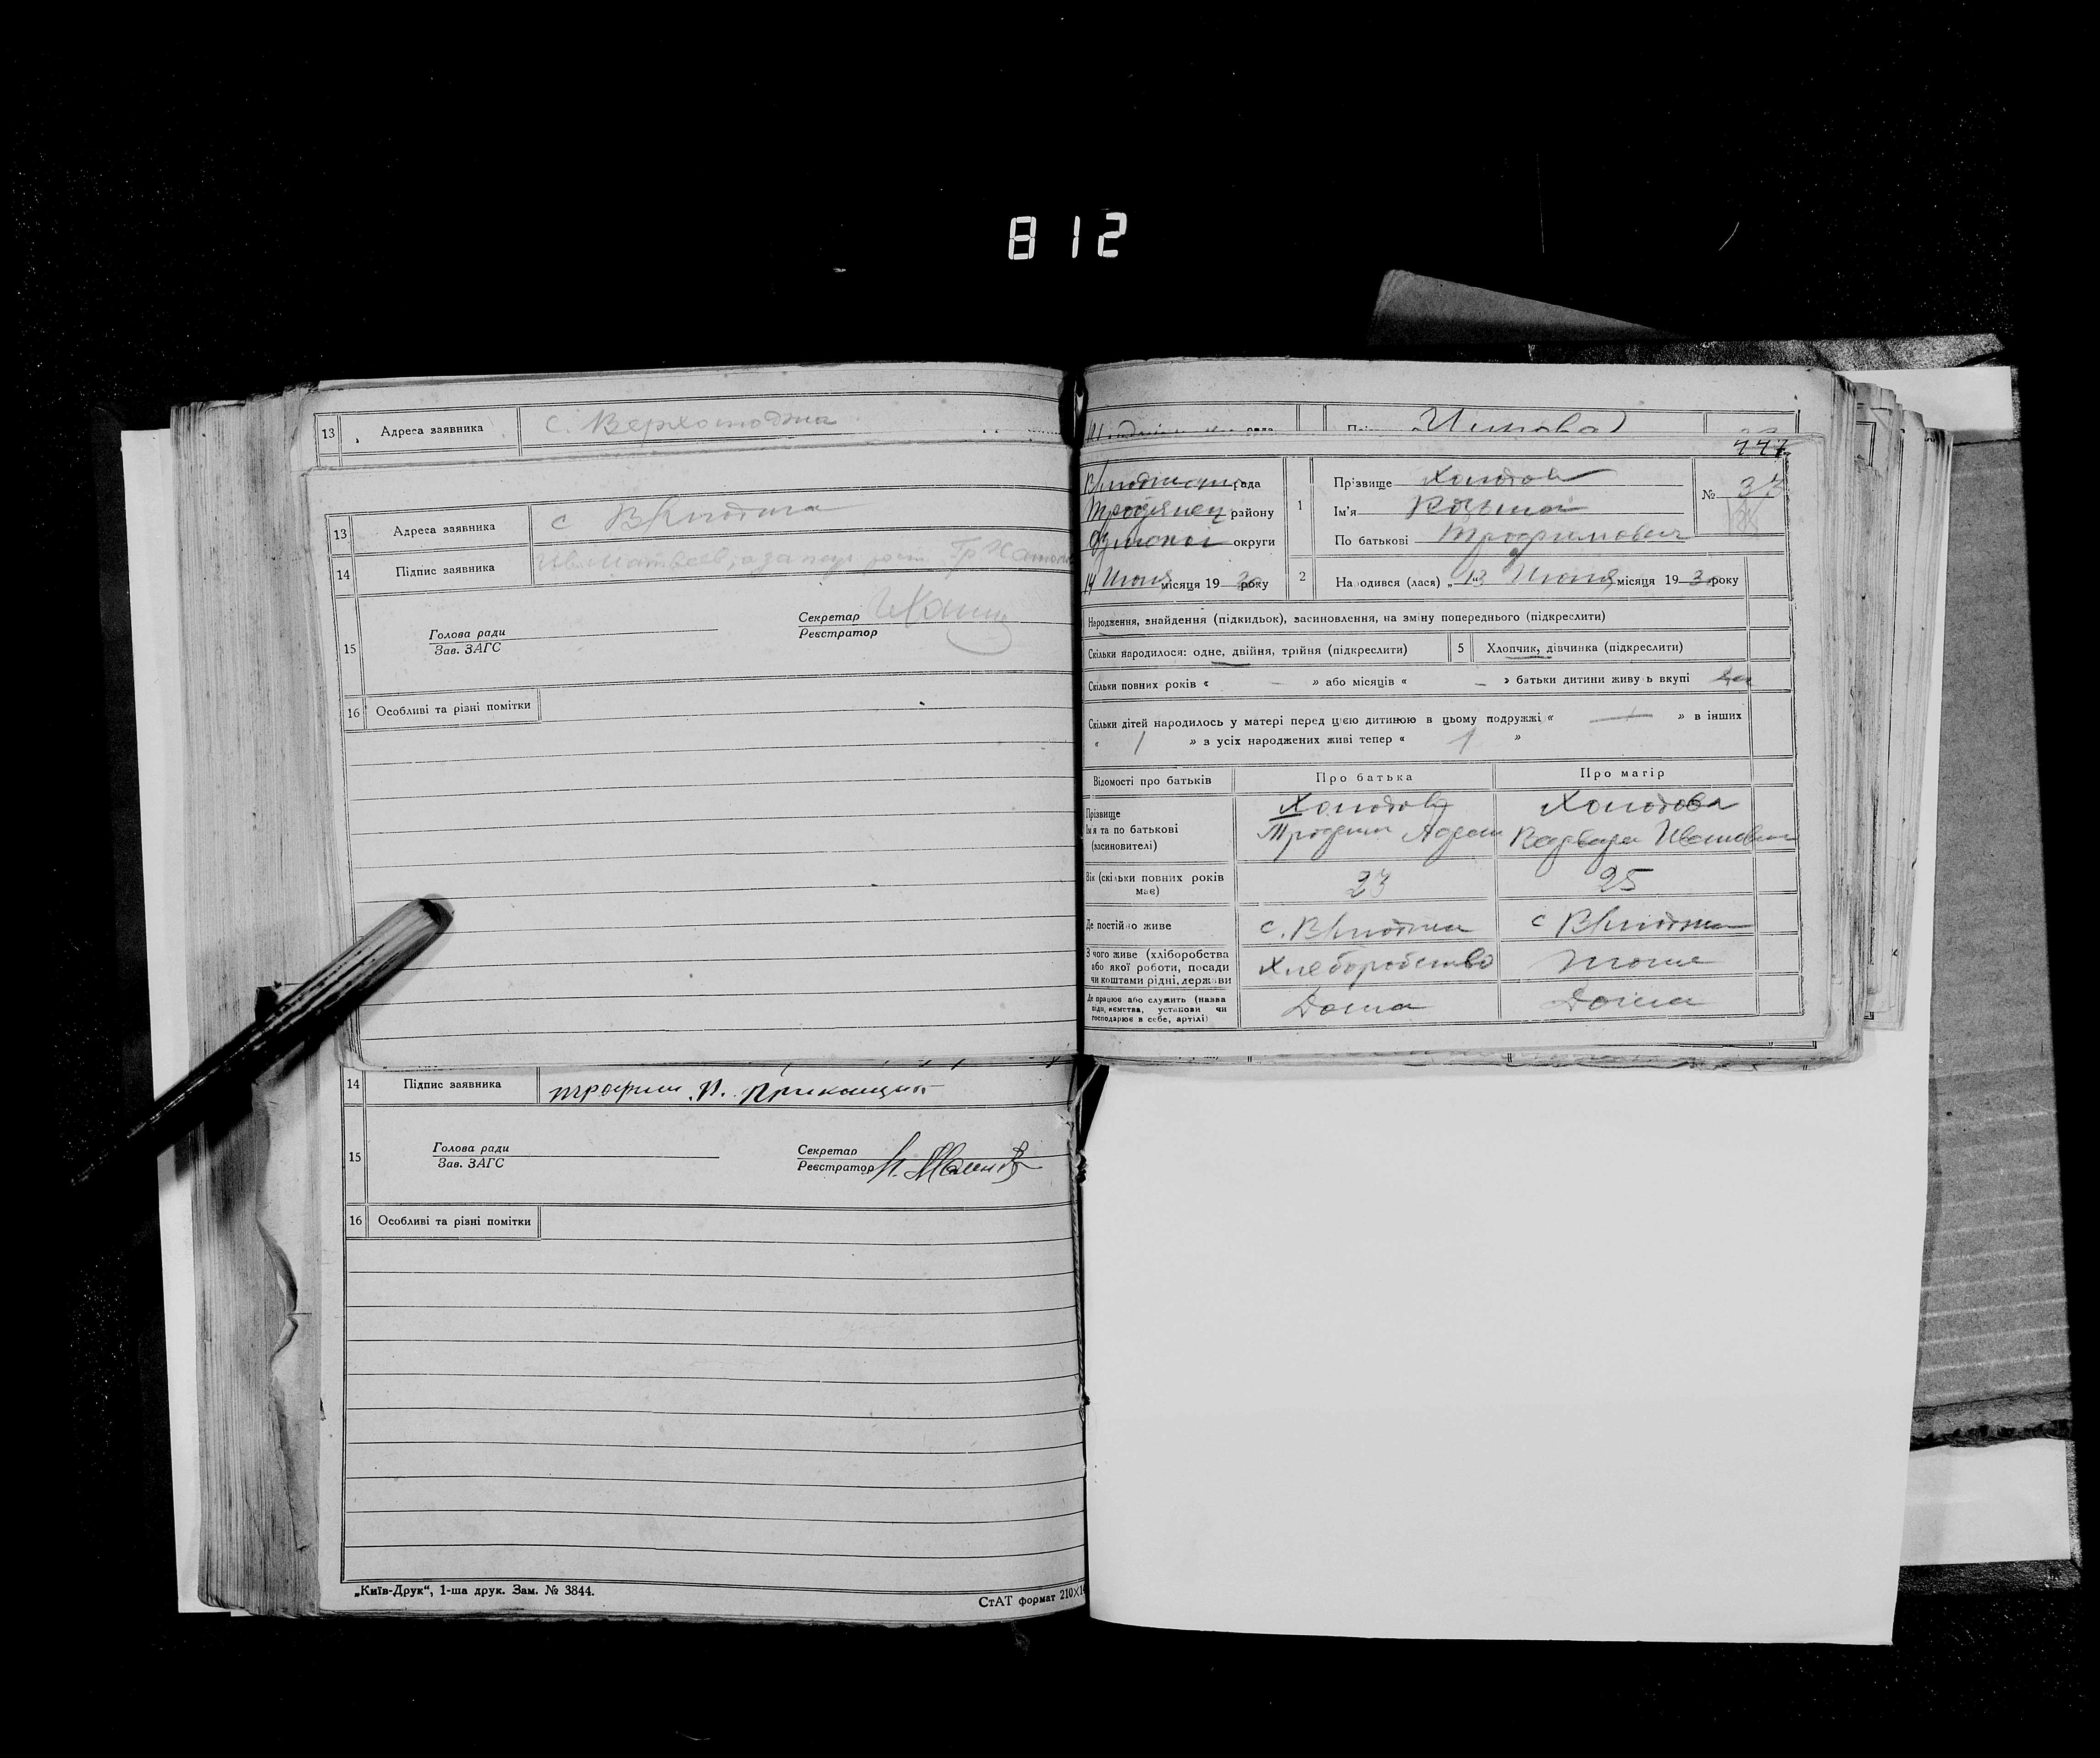 812
13 Адреса заявника с. Верхолюджа
13 Адреса заявника с
14 Підпис заявника
Секретар
15 Голова ради Реєстратор
Зав. ЗАГС
16 Особливі та різні помітки
14 Підпис заявника Трофим
15 Голова ради Секретар
Зав. ЗАГС Реєстратор
16 Особливі та різні помітки
„Київ-Друк“, 1-ша друк. Зам. № 3844.
СтАТ формат 210×14
447
рада 1 Прізвище Холодов № 37
району Ім'я Козьма
округи По батькові Трофимович
14 Июня місяця 1930 року 2 Народився (лася) „13 Июня місяця 1930 року
Народження, знайдення (підкидьок), засиновлення, на зміну попереднього (підкреслити)
Скільки народилося: одне, двійня, трійня (підкреслити) 5 Хлопчик, дівчинка (підкреслити)
Скільки повних років « – » або місяців « – » батьки дитини живуть вкупі да
Скільки дітей народилось у матері перед цією дитиною в цьому подружжі « — » в інших
« 1 » з усіх народжених живі тепер « 1 »
Відомості про батьків Про батька Про матір
Прізвище Холодов Холодова
Ім'я та по батькові Трофим Варвара Ивановна
(засиновителі)
Вік (скільки повних років 27 25
має)
Де постійно живе с. с
З чого живе (хліборобства Хлеборобство Тоже
або якої роботи, посади
чи коштами рідні, держави
Де працює або служить (назва Дома Дома
підприємства, установи чи
господарює в себе, артілі)